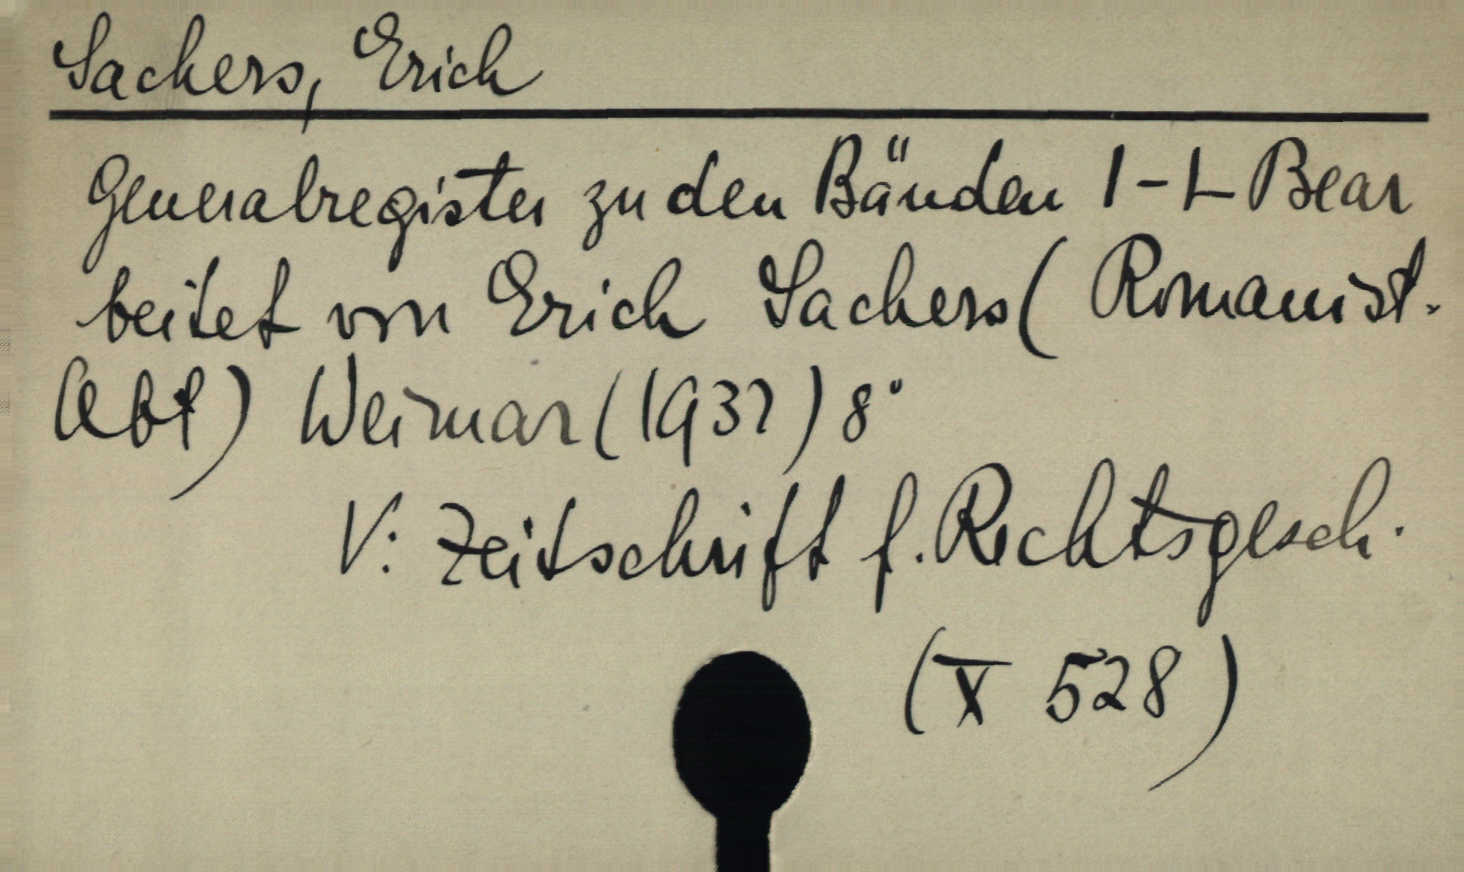 Sachers, Erich
Generalregister zu den Bänden I-L Bear
beitet von Erich Sachers (Romanist.
Abt) Weimar (1932) 8°
V: Zeitschrift f. Rechtsgesch.
(X 528)